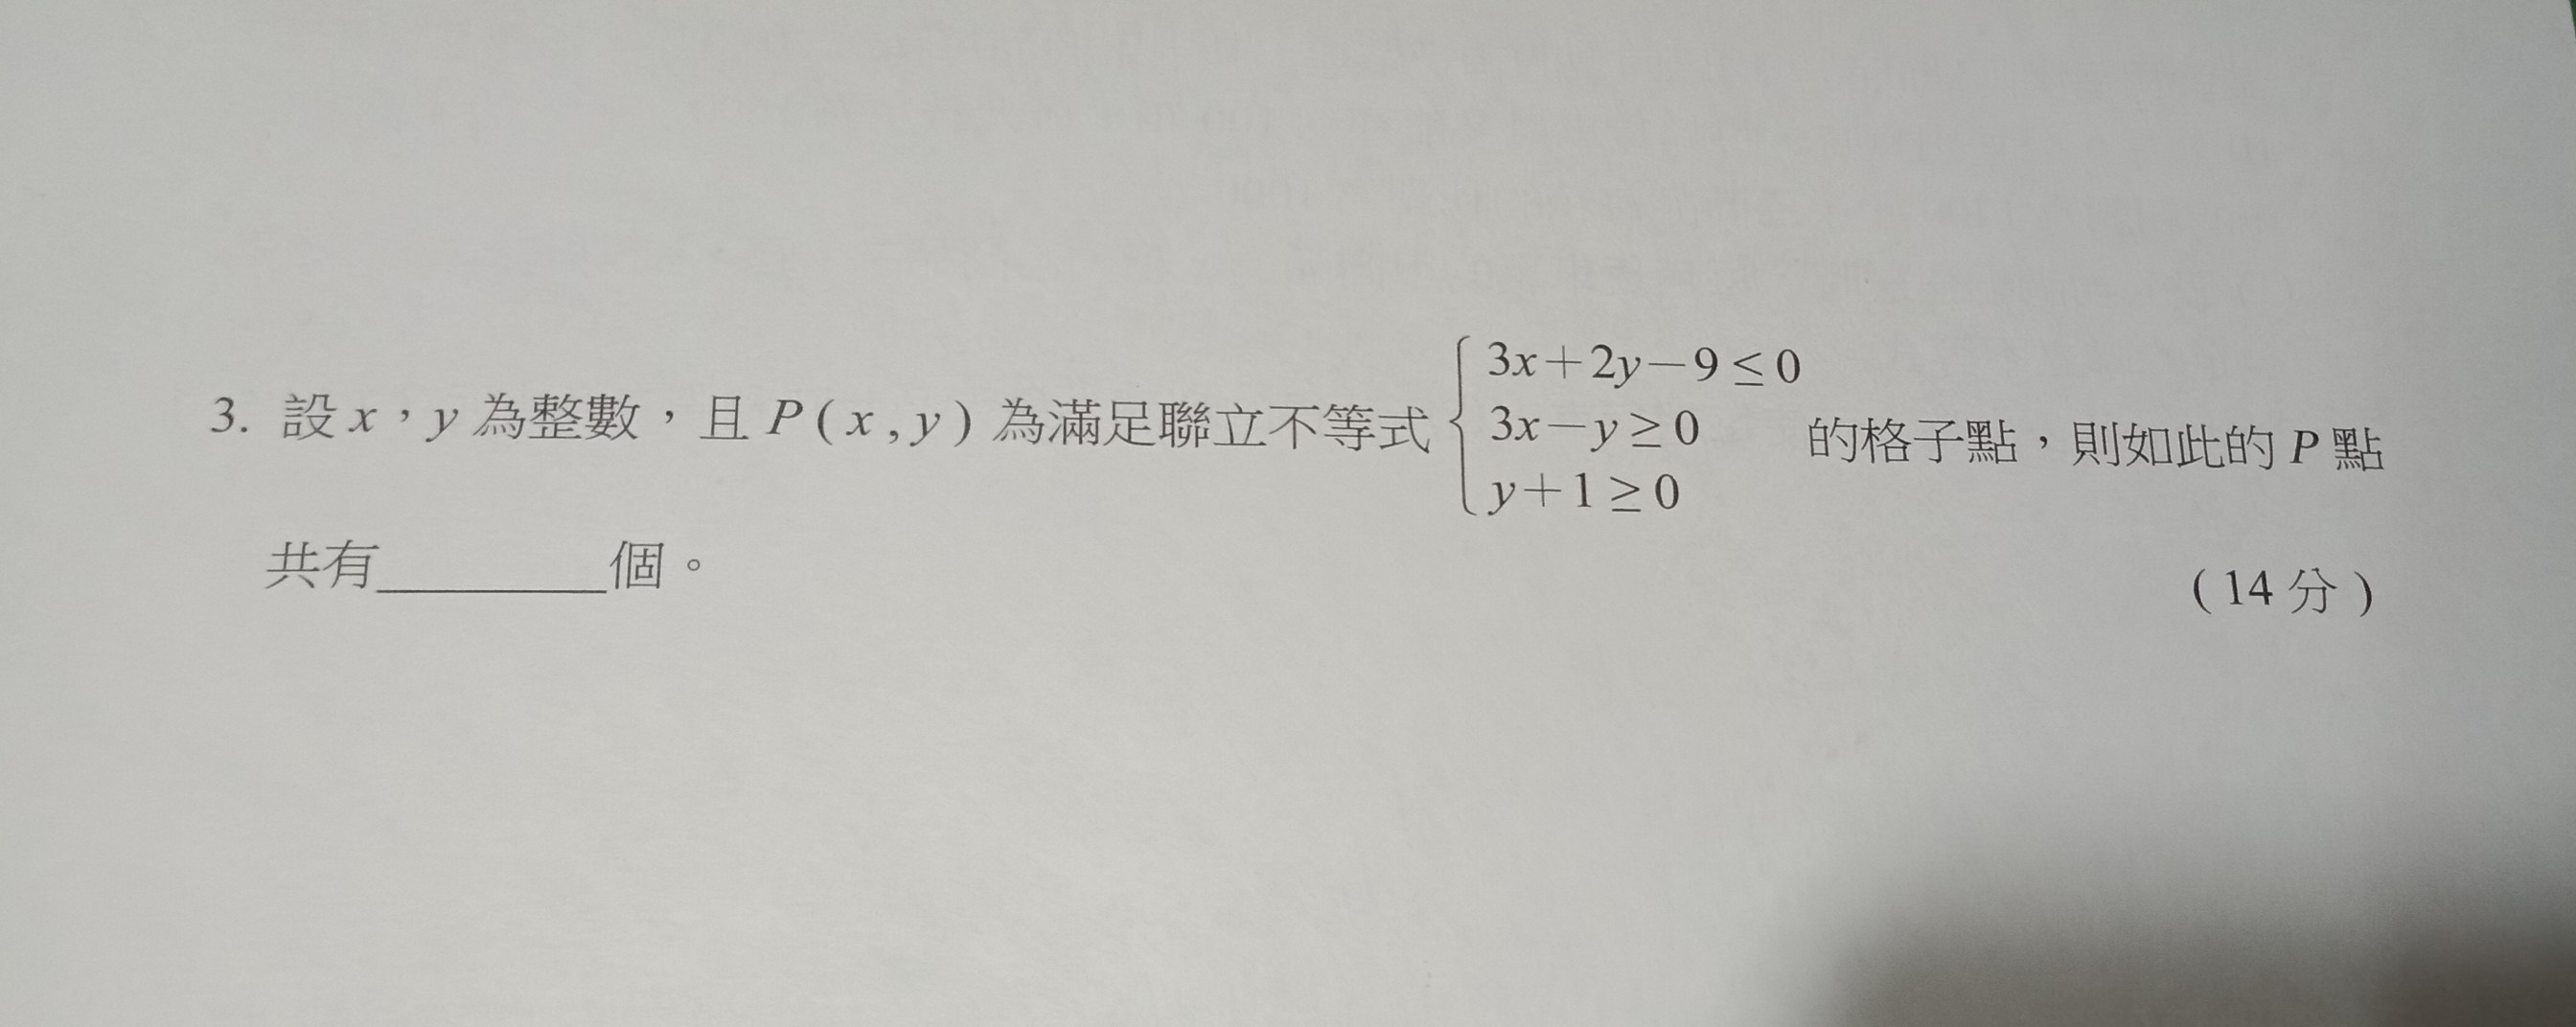 3. 設 x，y 為整數，且 P ( x , y ) 為滿足聯立不等式 { 3x＋2y－9 ≤ 0
3x－y ≥ 0
y＋1 ≥ 0 的格子點，則如此的 P 點
共有________個。
( 14 分 )